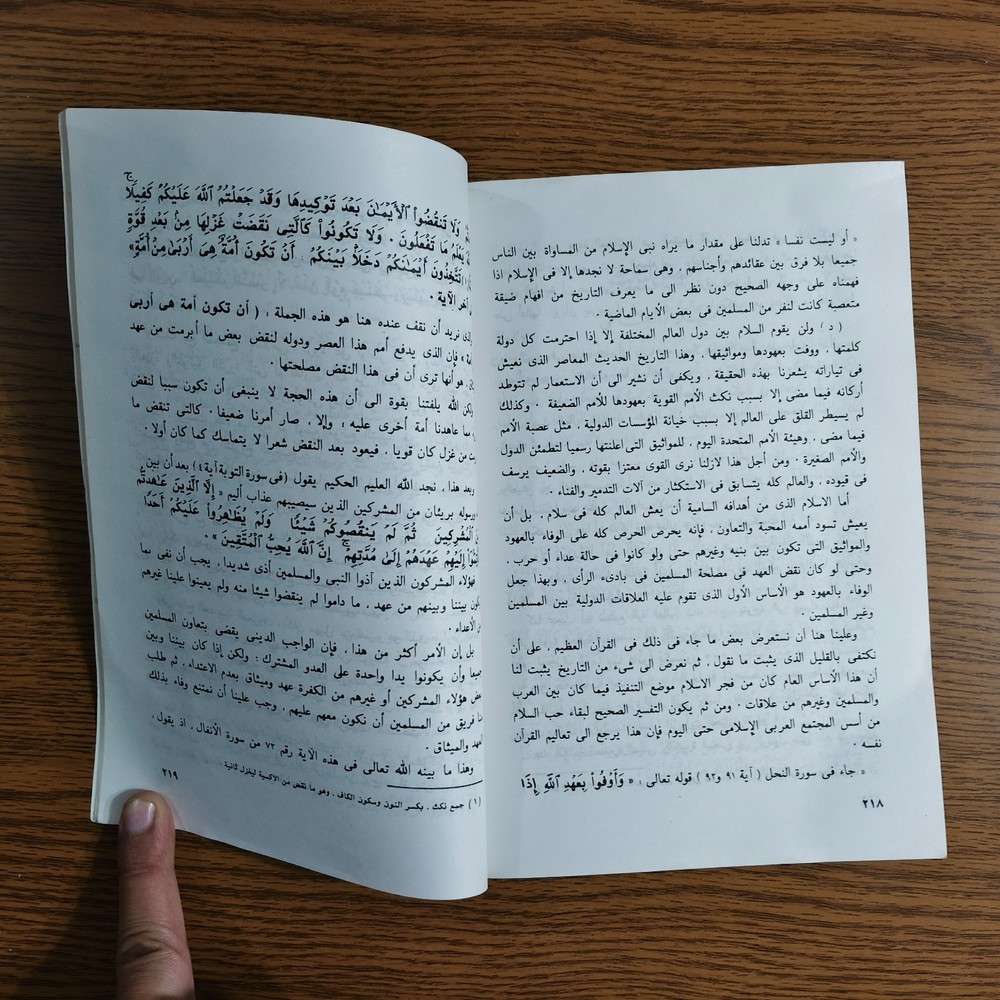 « أو ليست نفسا » تدلنا على مقدار ما يراه نبى الإسلام من المساواة بين الناس
جميعا بلا فرق بين عقائدهم وأجناسهم ، وهى سماحة لا نجدها إلا فى الإسلام اذا
فهمناه على وجهه الصحيح دون نظر الى ما يعرف التاريخ من افهام ضيقة
متعصبة كانت لنفر من المسلمين فى بعض الأيام الماضية .
( د ) ولن يقوم السلام بين دول العالم المختلفة إلا إذا احترمت كل دولة
كلمتها ، ووفت بعهودها ومواثيقها ، وهذا التاريخ الحديث المعاصر الذى نعيش
فى تياراته يشعرنا بهذه الحقيقة . ويكفى أن نشير الى أن الاستعمار لم تتوطد
أركانه فيما مضى إلا بسبب نكث الأمم القوية بعهودها للأمم الضعيفة . وكذلك
لم يسيطر القلق على العالم إلا بسبب خيانة المؤسسات الدولية ، مثل عصبة الأمم
فيما مضى ، وهيئة الأمم المتحدة اليوم ، للمواثيق التى اعلنتها رسميا لتطمئن الدول
والأمم الصغيرة . ومن أجل هذا لازلنا نرى القوى معتزا بقوته . والضعيف يرسف
فى قيوده ، والعالم كله يتسابق فى الاستكثار من آلات التدمير والفناء .
أما الاسلام الذى من أهدافه السامية أن يعش العالم كله فى سلام ، بل أن
يعيش تسود أممه المحبة والتعاون ، فإنه يحرص الحرص كله على الوفاء بالعهود
والمواثيق التى تكون بين بنيه وغيرهم حتى ولو كانوا فى حالة عداء أو حرب .
وحتى لو كان نقض العهد فى مصلحة المسلمين فى بادىء الرأى . وبهذا جعل
الوفاء بالعهود هو الأساس الأول الذى تقوم عليه العلاقات الدولية بين المسلمين
وغير المسلمين .
وعلينا هنا أن نستعرض بعض ما جاء فى ذلك فى القرآن العظيم ، على أن
نكتفى بالقليل الذى يثبت ما نقول . ثم نعرض الى شىء من التاريخ يثبت لنا
أن هذا الأساس العام كان من فجر الاسلام موضع التنفيذ فيما كان بين العرب
والمسلمين وغيرهم من علاقات . ومن ثم يكون التفسير الصحيح لبقاء حب السلام
من أسس المجتمع العربى الإسلامى حتى اليوم فإن هذا يرجع الى تعاليم القرآن
نفسه .
« جاء فى سورة النحل ( آية ٩١ و٩٢ ) قوله تعالى : « وَأَوْفُوا۟ بِعَهْدِ ٱللَّهِ إِذَا
٢١٨
وَلَا تَنقُضُوا۟ ٱلْأَيْمَٰنَ بَعْدَ تَوْكِيدِهَا وَقَدْ جَعَلْتُمُ ٱللَّهَ عَلَيْكُمْ كَفِيلًا ۚ
يَعْلَمُ مَا تَفْعَلُونَ . وَلَا تَكُونُوا۟ كَٱلَّتِى نَقَضَتْ غَزْلَهَا مِنۢ بَعْدِ قُوَّةٍ
تَتَّخِذُونَ أَيْمَٰنَكُمْ دَخَلًۢا بَيْنَكُمْ أَن تَكُونَ أُمَّةٌ هِىَ أَرْبَىٰ مِنْ أُمَّةٍ»
الآية .
نريد أن نقف عنده هنا هو هذه الجملة ، ( أن تكون أمة هى أربى
فإن الذى يدفع أمم هذا العصر ودوله لنقض بعض ما أبرمت من عهد
هو أنها ترى أن فى هذا النقض مصلحتها .
الله يلفتنا بقوة الى أن هذه الحجة لا ينبغى أن تكون سببا لنقض
عاهدنا أمة أخرى عليه ، وإلا . صار أمرنا ضعيفا . كالتى تنقض ما
من غزل كان قويا . فيعود بعد النقض شعرا لا يتماسك كما كان أولا .
وبعد هذا ، نجد الله العليم الحكيم يقول (فى سورة التوبة آية ٤) بعد أن بين
ورسوله بريئان من المشركين الذين سيصيبهم عذاب أليم « إِلَّا ٱلَّذِينَ عَٰهَدتُّم
ٱلْمُشْرِكِينَ ثُمَّ لَمْ يَنقُصُوكُمْ شَيْـًٔا وَلَمْ يُظَٰهِرُوا۟ عَلَيْكُمْ أَحَدًا
إِلَيْهِمْ عَهْدَهُمْ إِلَىٰ مُدَّتِهِمْ ۚ إِنَّ ٱللَّهَ يُحِبُّ ٱلْمُتَّقِينَ » .
فهؤلاء المشركون الذين آذوا النبى والمسلمين أذى شديدا . يجب أن نفى بما
بيننا وبينهم من عهد ، ما داموا لم ينقضوا شيئا منه ولم يعينوا علينا غيرهم
الأعداء .
بل إن الأمر أكثر من هذا . فإن الواجب الدينى يقضى بتعاون المسلمين
وأن يكونوا يدا واحدة على العدو المشترك ؛ ولكن إذا كان بيننا وبين
هؤلاء المشركين أو غيرهم من الكفرة عهد وميثاق بعدم الاعتداء . ثم طلب
فريق من المسلمين أن نكون معهم عليهم . وجب علينا أن نمتنع وفاء بذلك
والميثاق .
وهذا ما بينه الله تعالى فى هذه الآية رقم ٧٢ من سورة الأنفال . اذ يقول .
(١) جمع نكث . بكسر النون وسكون الكاف . وهو ما نقض من الاكسية ليغزل ثانية .
٢١٩